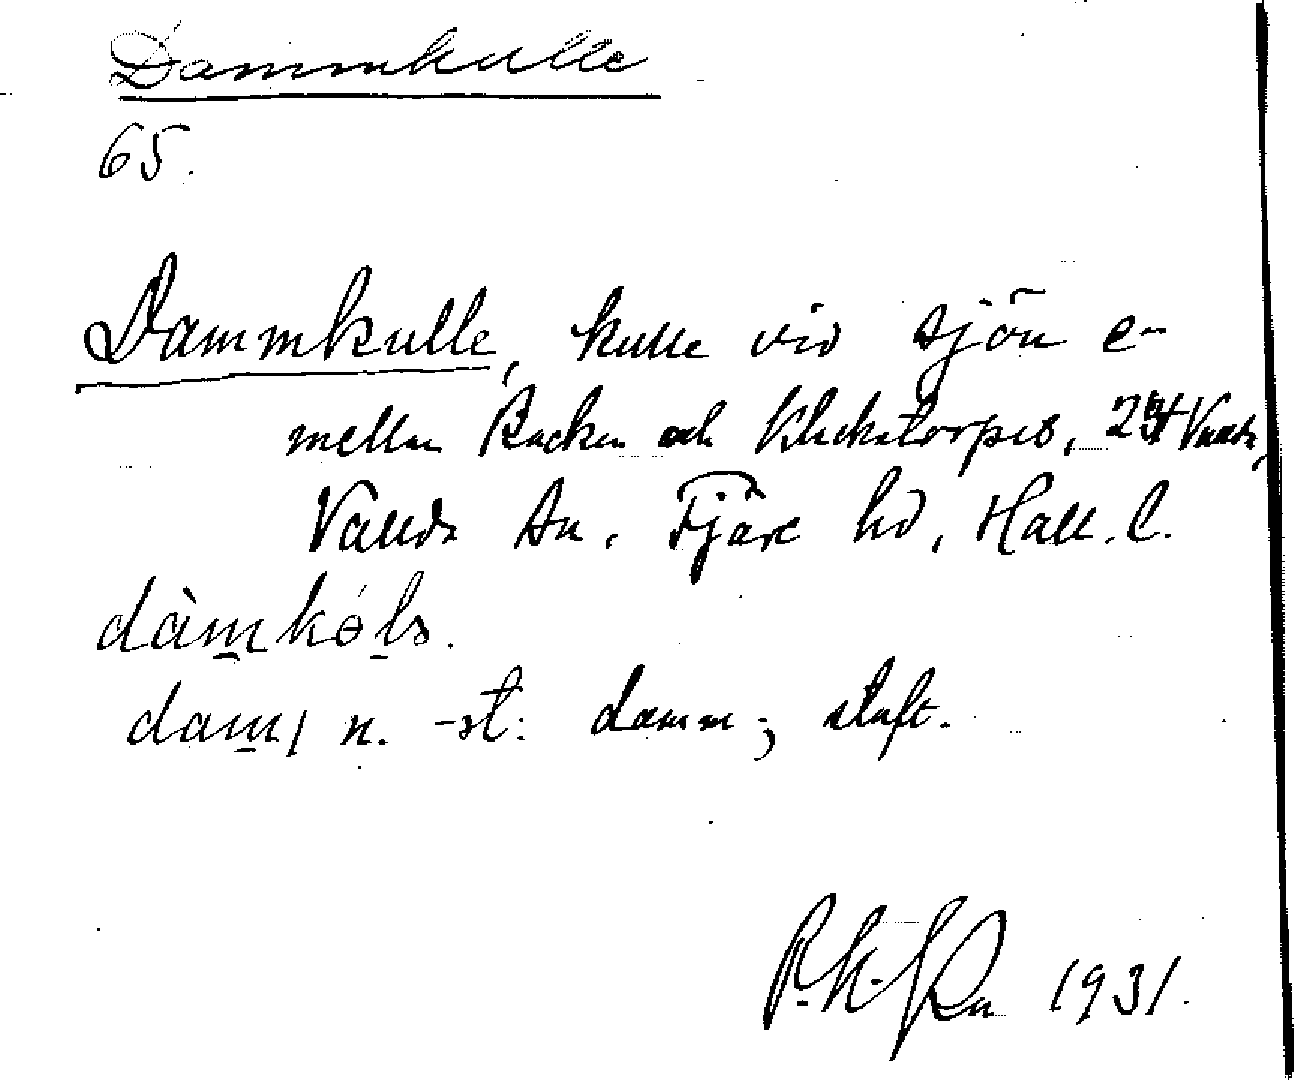 Dammkulle
65.
Dammkulle, kulle vid sjön e-
mellan Backen och Klickstorpes,
Vallda sn. Fjäre hd, Hall. l.
dàmkólə.
dam/ n. -st: damm; stoft.
1931.